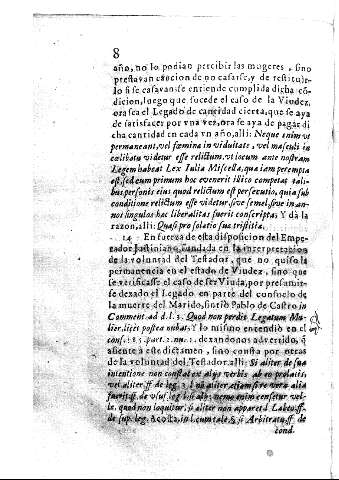 8
año, no lo podian percibir las mugeres, sino
prestavan caucion de no casarse, y de restituir-
lo si se casavan: se entiende cumplida dicha cō-
dicion, luego que sucede el caso de la Viudez,
ora sea el Legado de cantidad cierta, que se aya
de satisfacer por vna vez, ora se aya de pagar di
cha cantidad en cada vn año, alli: Neque enim vt
permaneant, vel fœmina in viduitate, vel masculi in
cœlibatu videtur esse relictum, vt locum ante nostram
Legem habeat Lex Iulia Miscella, quæ iam perempta
est, sed cum primum hoc evenerit illico competat tali-
bus personis eius quod relictum est persecutio, quia sub
conditione relictum esse videtur, sive semel, sive in an-
nos singulos hac liberalitas fuerit conscripta: Y dà la
razon, alli: Quasi pro solatio suæ tristitiæ.
14 En fuerza de esta disposicion del Empe-
rador Justiniano, fundada en la interpretacion
de la voluntad del Testador, que no quiso la
permanencia en el estado de Viudez, sino que
se verificasse el caso de ser Viuda, por presumir-
se dexado el Legado en parte del consuelo de
la muerte del Marido, sintiò Pablo de Castro in
Comment. ad d. l. 3. Quod non perdit Legatum Mu-
lier, licèt postea nubat: Y lo mismo entendiò en el
cons. 185. part. 2. nu. 2. dexandonos advertido, q̄
assiente à este dictamen, sino consta por otras
de la voluntad del Testador, alli: Si aliter de sua
intentione non constat ex alijs verbis ab eo prolatis,
vel aliter, ff. de leg. 3. l. etiam si re vera alia
fuerit ff. de vsuf. leg. nemo enim censetur vel-
le, quod non loquitur, si aliter non appareat
de sup. leg. & si Arbitratu ff. de
cond.